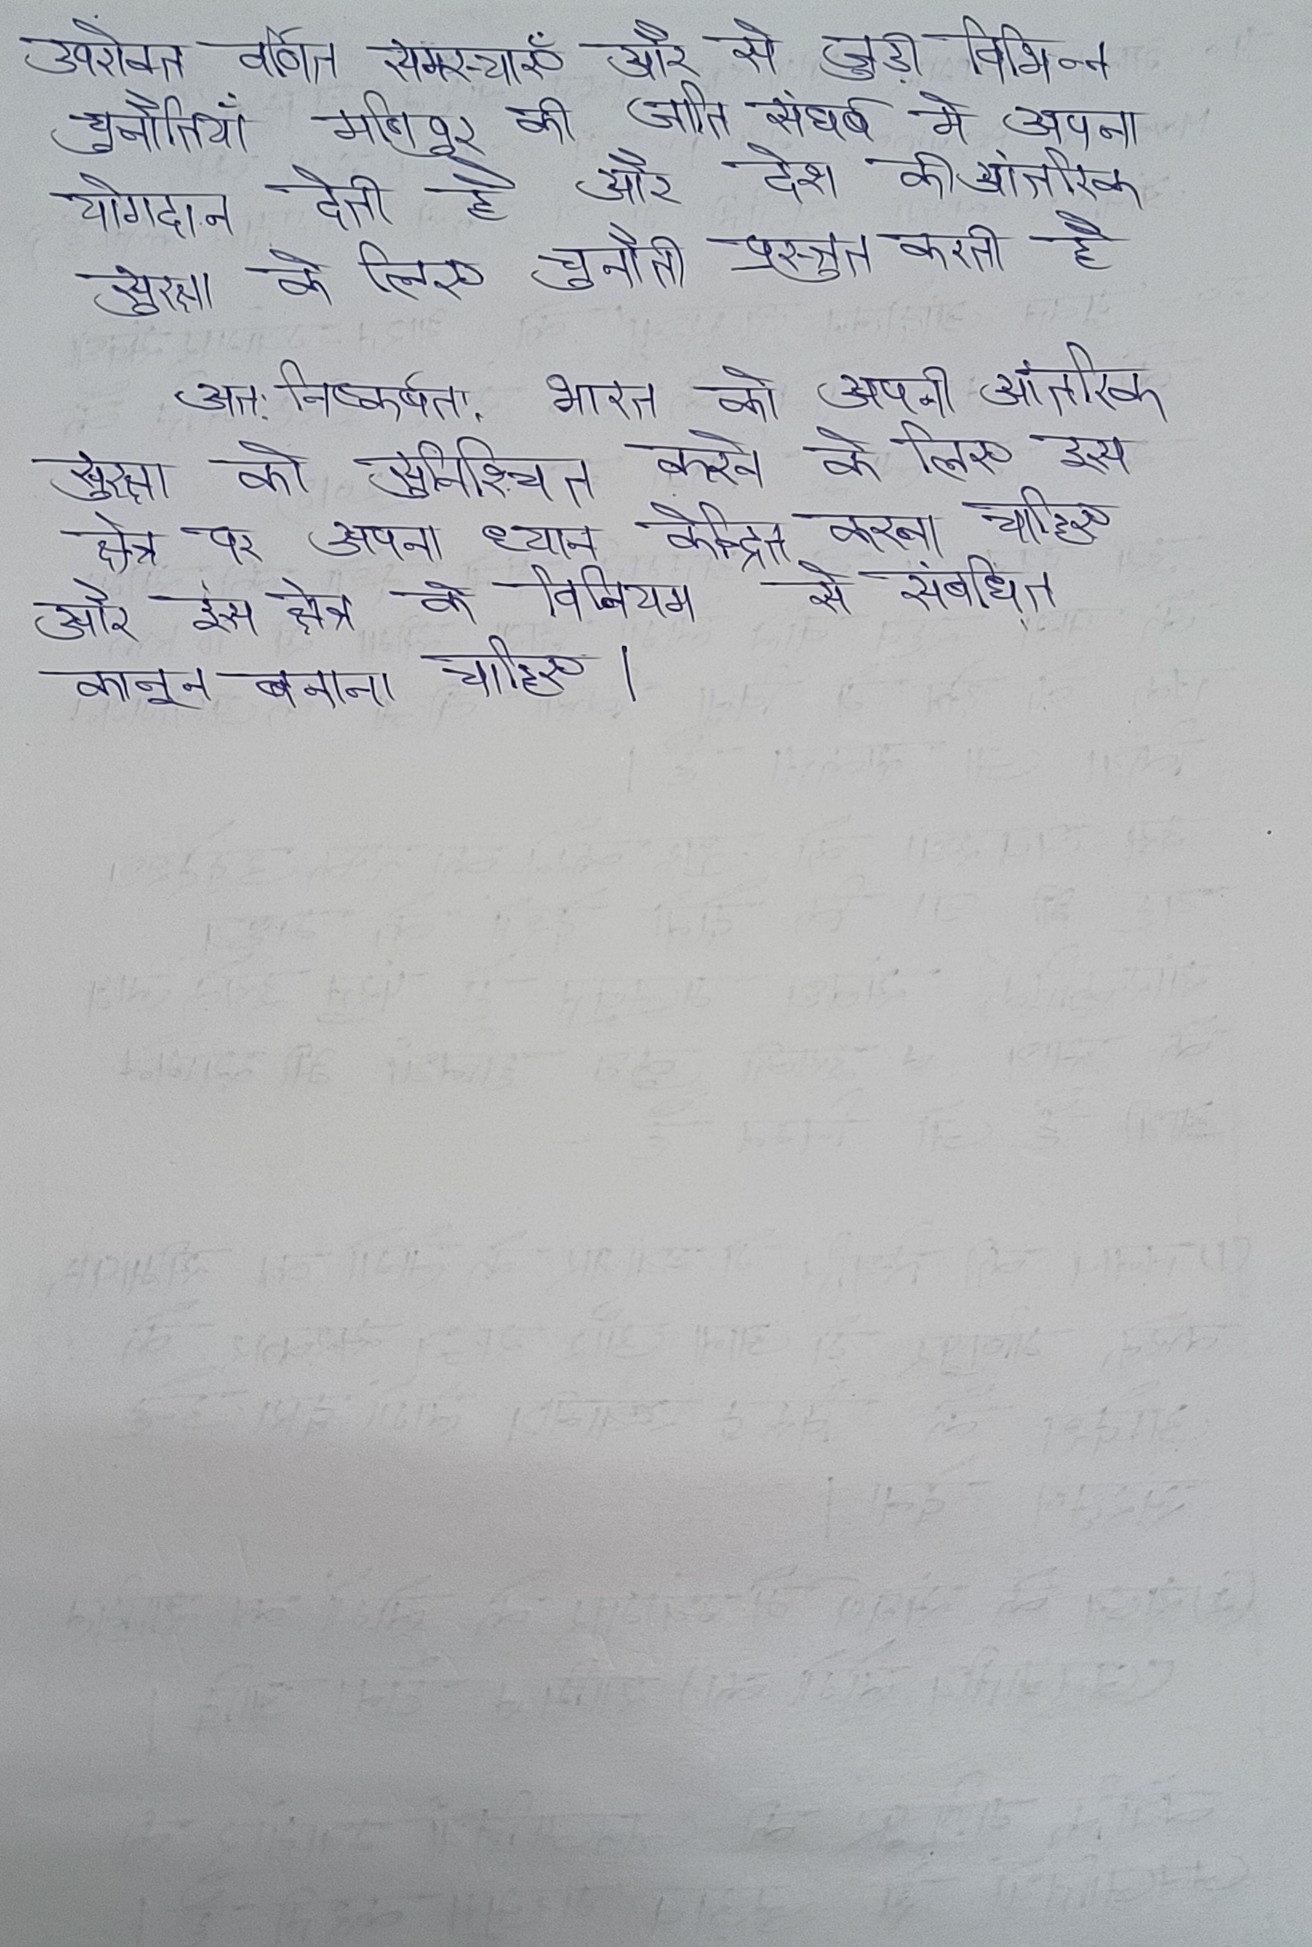 उपरोक्त वर्णित समस्याएँ और से जुड़ी विभिन्न
चुनौतियाँ मणिपुर की जाति संघर्ष मे अपना
योगदान देती है और देश की आंतरिक
सुरक्षा के लिए चुनौती प्रस्तुत करती है
अतः निष्कर्षता. भारत को अपनी आंतरिक
सुरक्षा को सुनिश्चित करने के लिए इस
क्षेत्र पर अपना ध्यान केन्द्रित करना चाहिए
और इस क्षेत्र के विनियम से संबधित
कानून बनाना चाहिए |